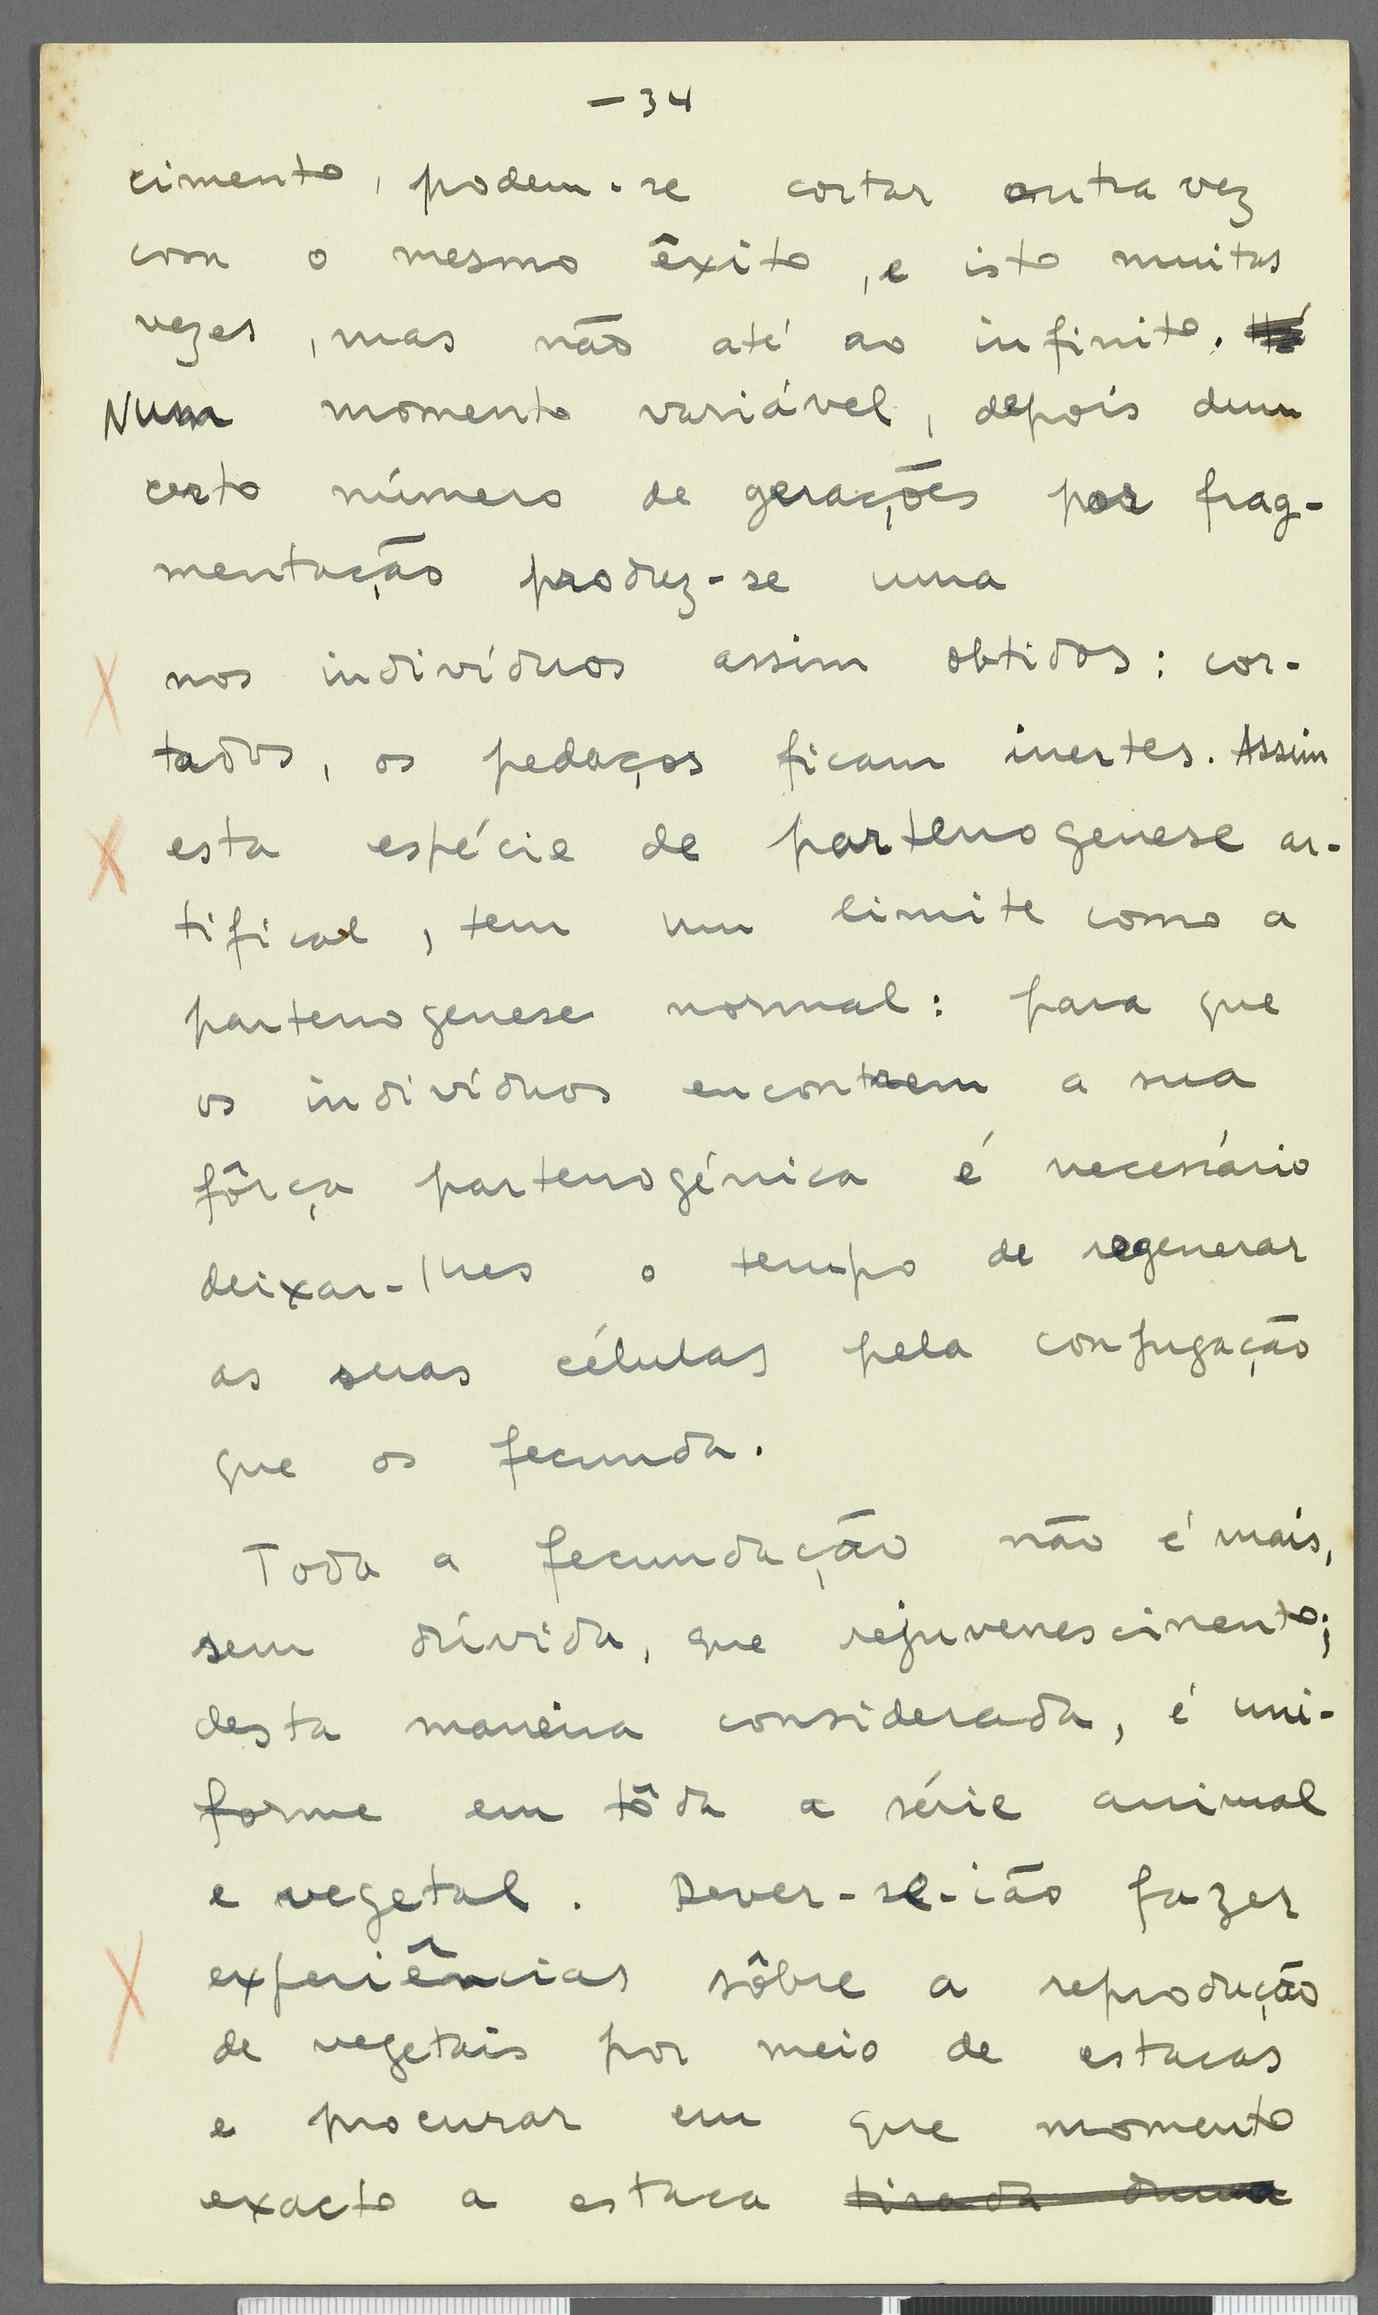 — 34
cimento, podem-se cortar outra vez
com o mesmo êxito, e isto muitas
vezes, mas não até ao infinito.
Num momento variável, depois dum
certo número de gerações por frag-
mentação produz-se uma
nos indivíduos assim obtidos: cor-
tados, os pedaços ficam inertes. Assim
esta espécie de partenogenese ar-
tifical, tem um limite como a
partenogenese normal: para que
os indivíduos encontrem a sua
fôrça partenogénica é necessário
deixar-lhes o tempo de regenerar
as suas células pela conjugação
que os fecunda.
Toda a fecundação não é mais,
sem dúvida, que rejuvenescimento;
desta maneira considerada, é uni-
forme em tôda a série animal
e vegetal. Dever-se-ião fazer
experiências sôbre a reprodução
de vegetais por meio de estacas
e procurar em que momento
exacto a estaca tirada duma